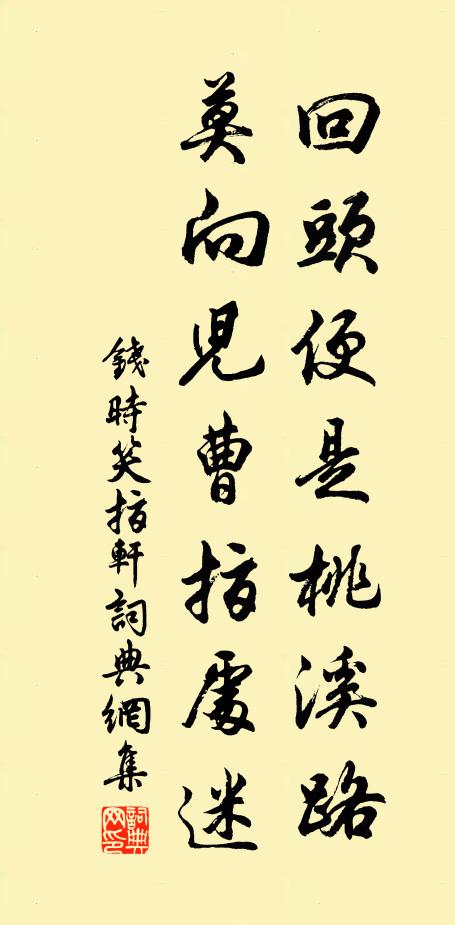 回頭便是桃溪路
莫向児曹指處迷
錢時笑指軒詞典網集
詞典網印